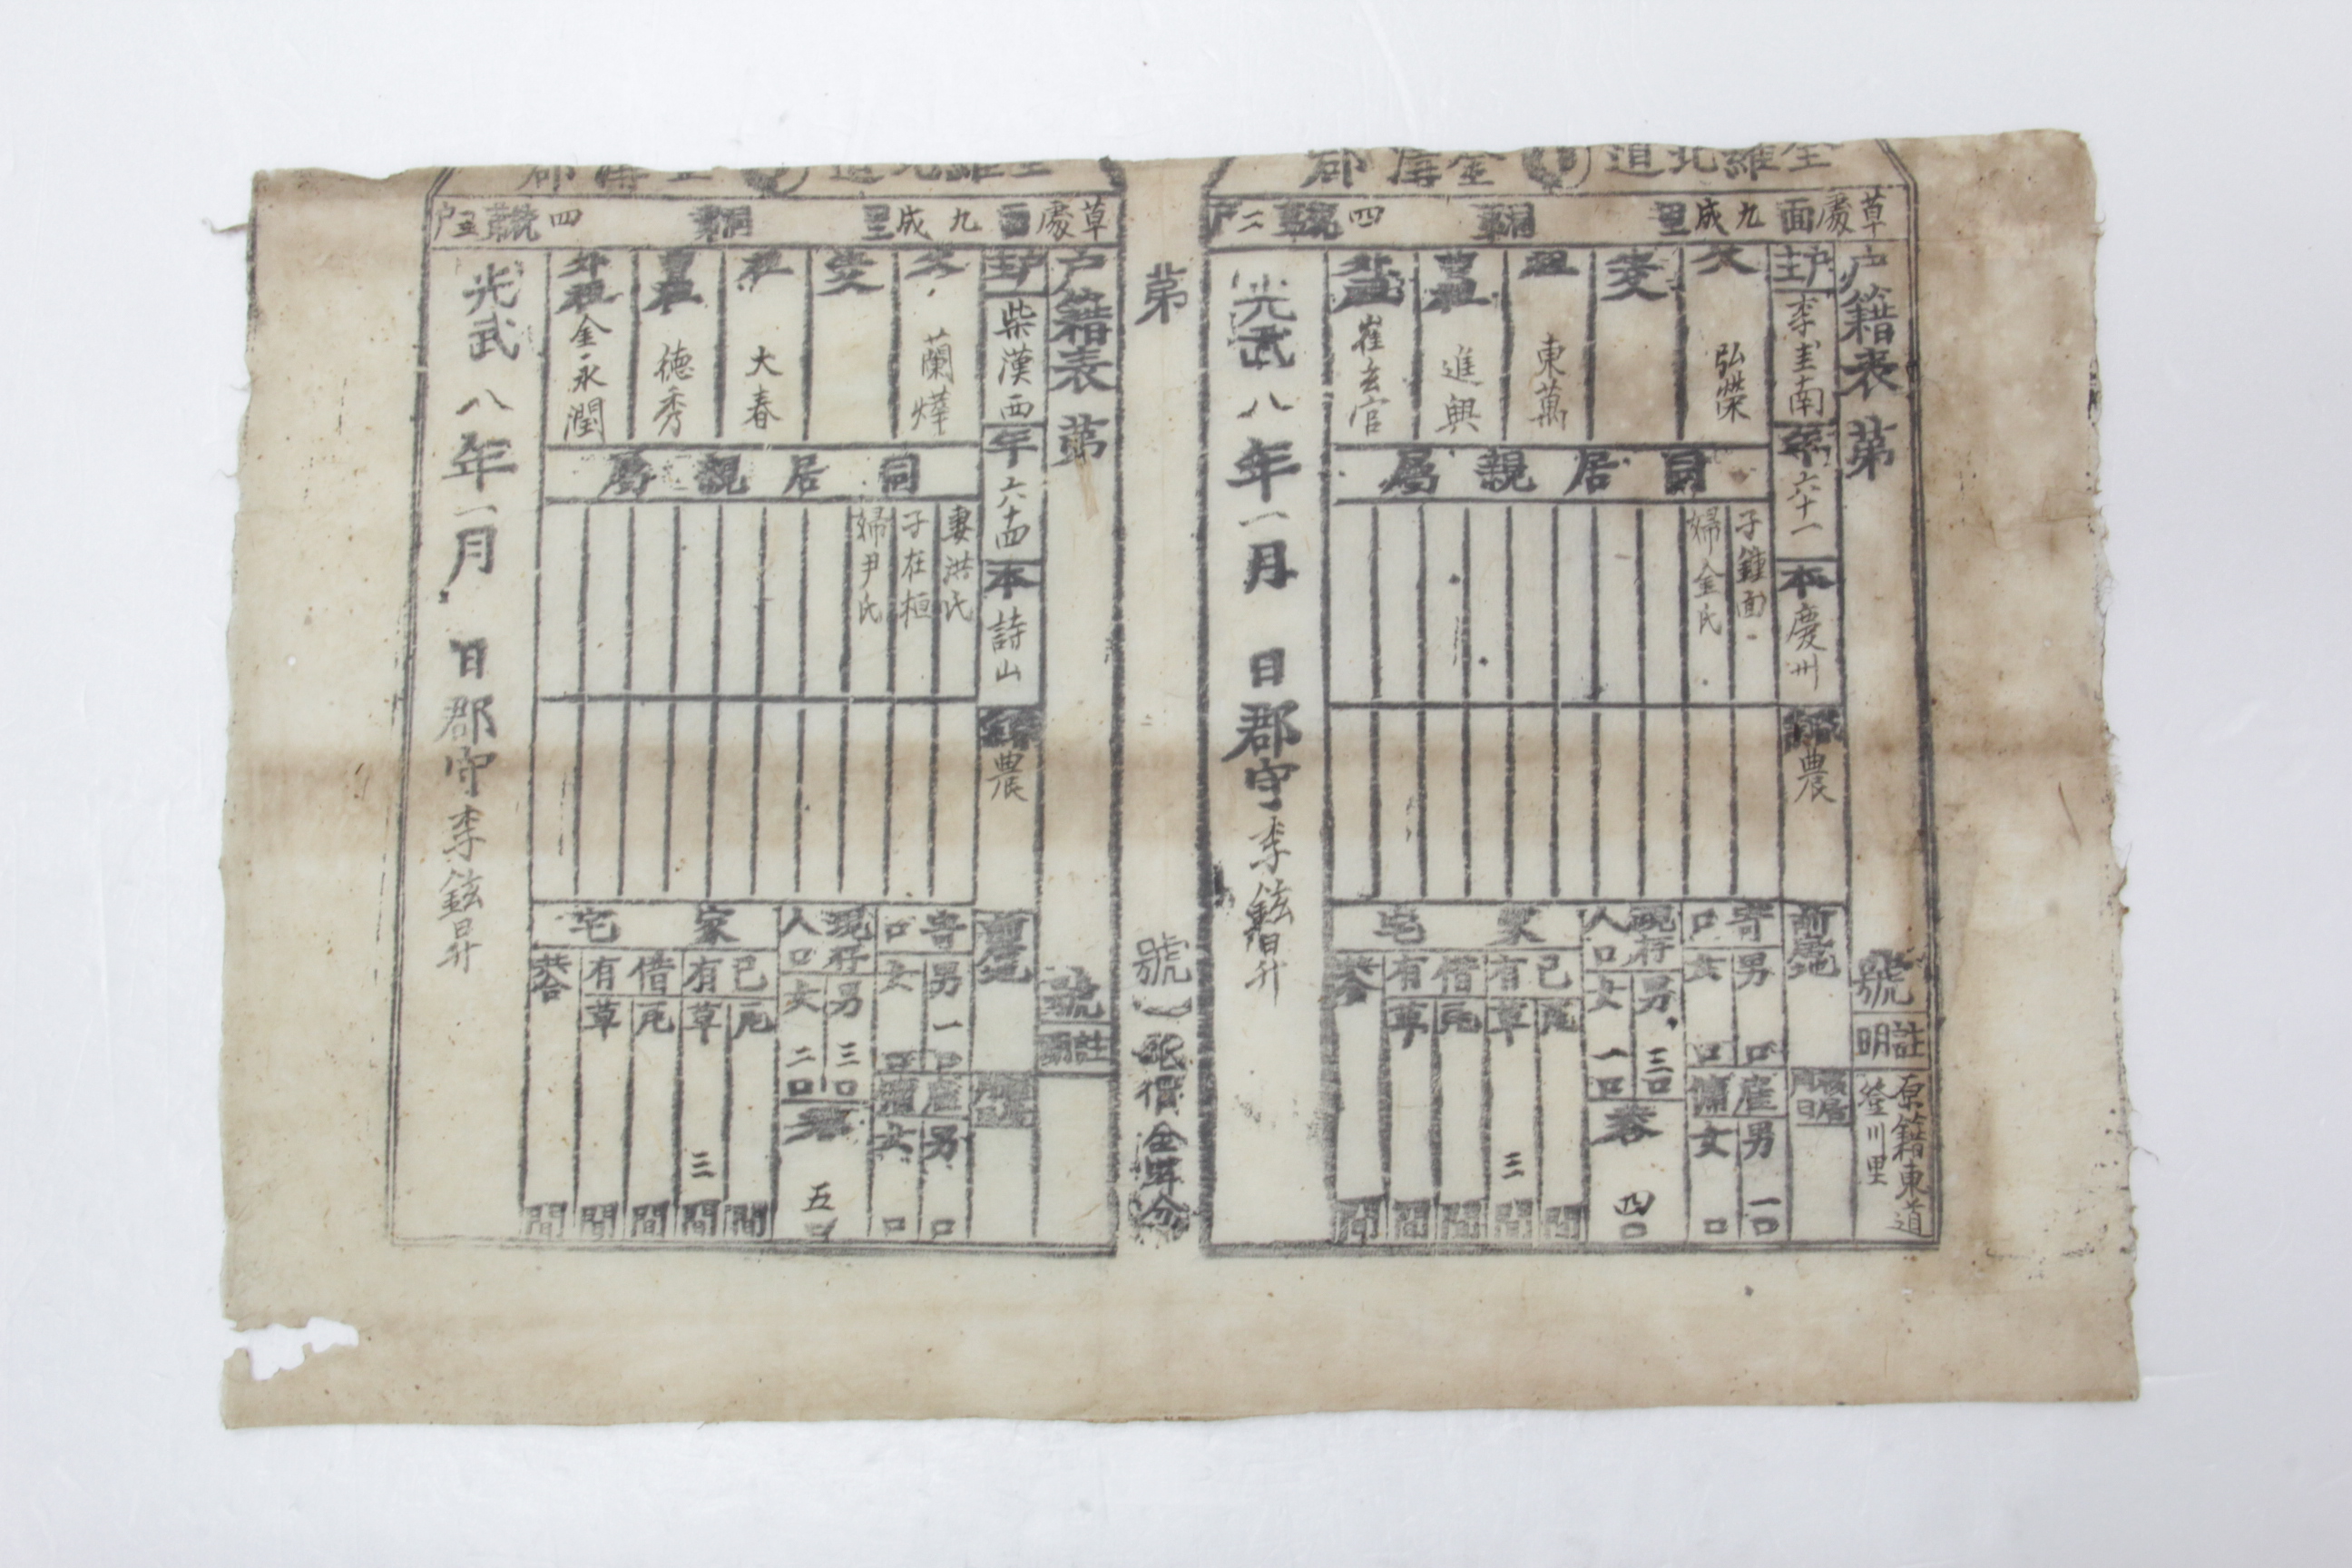 全羅北道 金溝郡
草處面 九成里 洞 第四統 二戶
戶籍表 第 號
註明
原籍東道
登川里
戶主 李圭南
年 六十一
本 慶州
職業 農
前居地
移居月日
父 弘榮
生父
祖 東萬
曾祖 進興
外祖 崔玄官
同居親屬
子 鍾面
婦 金氏
寄口 男 口 女 口
雇傭 男 一口 女 口
現存人口 男 三口 女 一口
共 四口
家宅
己有 瓦 間 草 三間
借有 瓦 間 草 間
共合 間
光武八年一月 日 郡守 李鉉昇
第 號
紙價金
全羅北道 金溝郡
草處面 九成里 洞 第四統 五戶
戶籍表 第 號
註明
戶主 柴漢西
年 六十四
本 詩山
職業 農
前居地
移居月日
父 蘭燁
生父
祖 大春
曾祖 德秀
外祖 金永潤
同居親屬
妻 洪氏
子 在桓
婦 尹氏
寄口 男 一口 女 口
雇傭 男 口 女 口
現存人口 男 三口 女 二口
共 五口
家宅
己有 瓦 間 草 三間
借有 瓦 間 草 間
共合 間
光武八年一月 日 郡守 李鉉昇